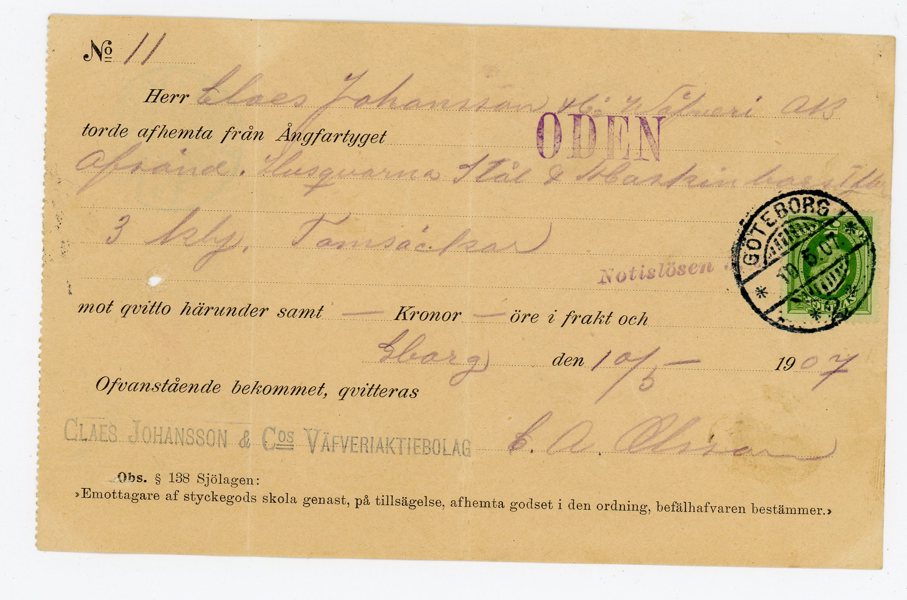 No 11
Herr Claes Johansson & Co Väfveri AB
torde afhemta från Ångfartyget ODEN
afsänd. Husqvarna Stål &
3 Tomsäckar
Notislösen
mot qvitto härunder samt — Kronor — öre i frakt och
Gborg den 10/5 1907
Ofvanstående bekommet, qvitteras
CLAES JOHANSSON & Cos VÄFVERIAKTIEBOLAG
C. A. Olsson
Obs. § 138 Sjölagen:
»Emottagare af styckegods skola genast, på tillsägelse, afhemta godset i den ordning, befälhafvaren bestämmer.»
GÖTEBORG 1
10.5.07